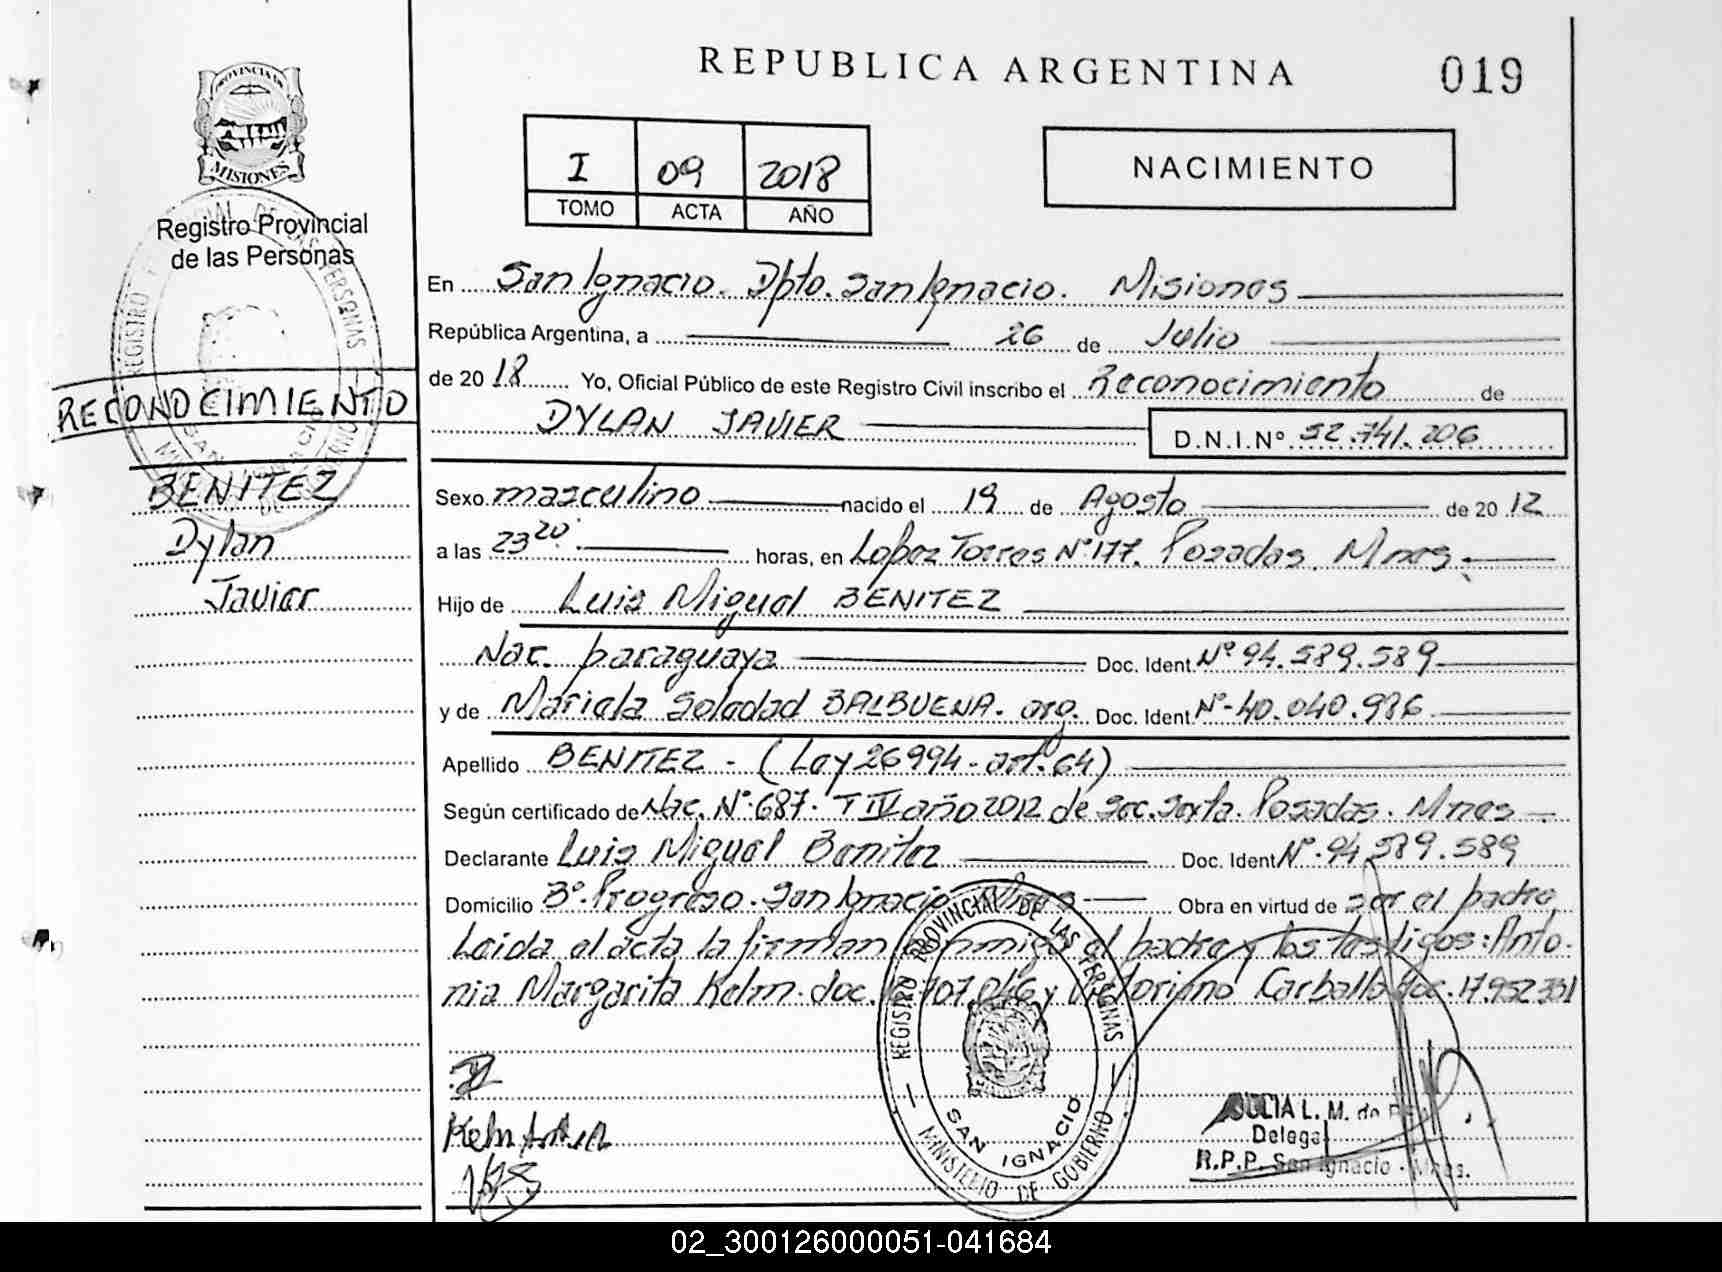 REPUBLICA ARGENTINA
019
PROVINCIA DE
MISIONES
Registro Provincial
de las Personas
I 09 2018
TOMO ACTA AÑO
NACIMIENTO
En San Ignacio. Dpto. San Ignacio. Misiones
República Argentina, a 26 de Julio
de 2018 Yo, Oficial Público de este Registro Civil inscribo el Reconocimiento de
DYLAN JAVIER D.N.I.Nº 52.741.206
RECONOCIMIENTO
BENITEZ
Dylan
Javier
Sexo masculino nacido el 19 de Agosto de 2012
a las 23 20 horas, en Lopez Torres Nº 177. Posadas. Mnes.
Hijo de Luis Miguel BENITEZ
Nac. paraguaya Doc. Ident Nº 94.589.589
y de Mariela Soledad BALBUENA. arg. Doc. Ident Nº 40.040.986
Apellido BENITEZ - (Ley 26994 - art. 64)
Según certificado de Nac. Nº 687. T IV año 2012 de Sec. Sexta. Posadas. Mnes
Declarante Luis Miguel Benitez Doc. Ident Nº 94.589.589
Domicilio Bº. Progreso. San Ignacio. Mnes Obra en virtud de ser el padre,
Leida el acta la firman conmigo el padre y los testigos: Anto-
nia Margarita Kelm. doc. 707.046 y Victoriano Carballo doc. 17.952.331
REGISTRO PROVINCIAL DE LAS PERSONAS
SAN IGNACIO
MINISTERIO DE GOBIERNO
JULIA L. M. de
Delega
R.P.P. San Ignacio - Mnes.
02_300126000051-041684